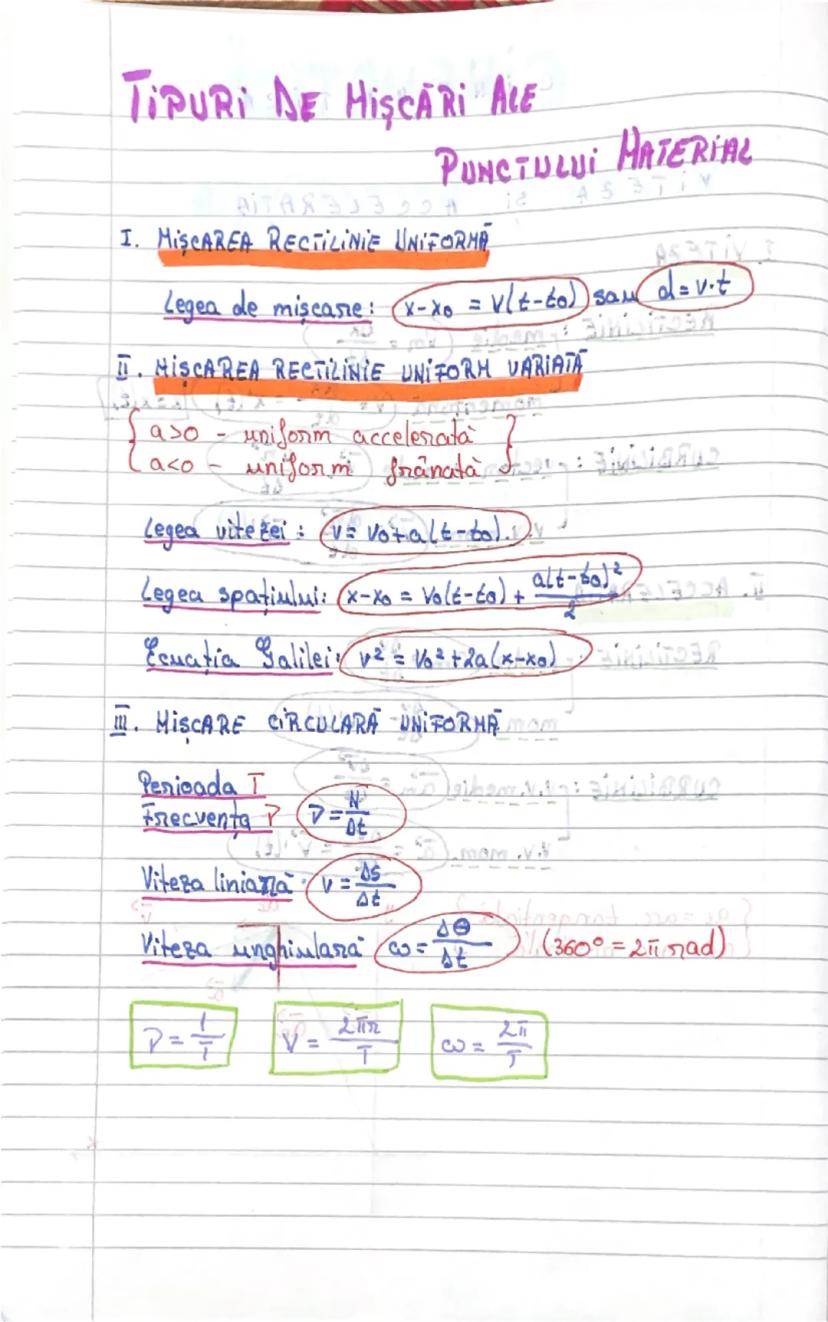 TIPURI DE MIŞCĂRI ALE
PUNCTULUI MATERIAL
I. MIŞCAREA RECTILINIE UNIFORMĂ
Legea de mişcare: x-x₀ = v(t-t₀) sau d=v·t
II. MIŞCAREA RECTILINIE UNIFORM VARIATĂ
{ a>0 - uniform accelerată }
{ a<0 - uniform frânată }
Legea vitezei: v= v₀+a(t-t₀).
Legea spaţiului: x-x₀ = v₀(t-t₀) + a(t-t₀)²/2
Ecuaţia Galilei: v² = v₀²+2a(x-x₀)
III. MIŞCARE CIRCULARĂ UNIFORMĂ
Perioada T
Frecvenţa ν ν = N/Δt
Viteza liniară v = Δs/Δt
Viteza unghiulară ω = Δθ/Δt (360° = 2π rad)
ν = 1/T V = 2πr/T ω = 2π/T